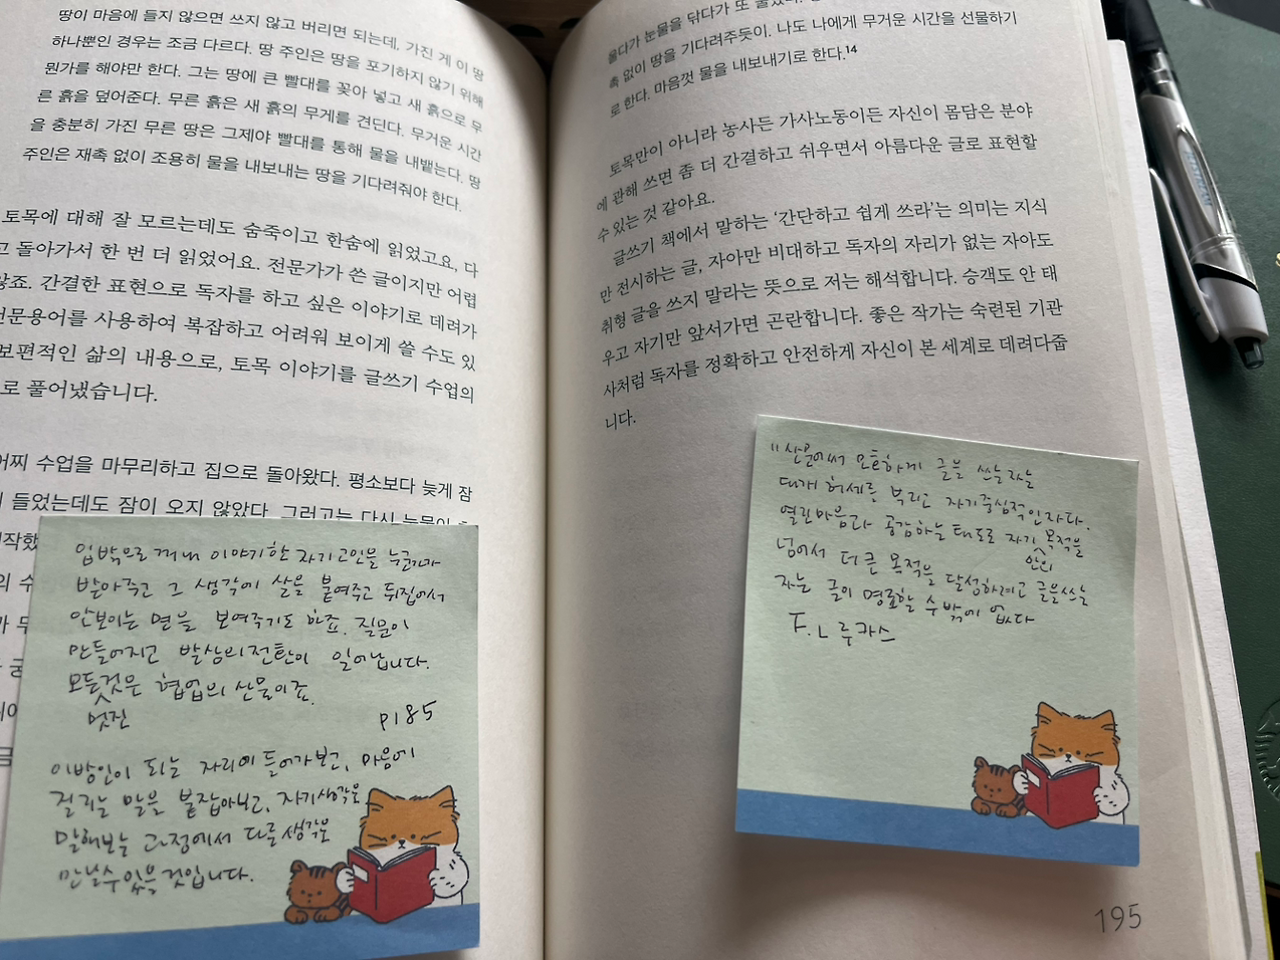 땅이 마음에 들지 않으면 쓰지 않고 버리면 되는데, 가진 게 이 땅
하나뿐인 경우는 조금 다르다. 땅 주인은 땅을 포기하지 않기 위해
뭔가를 해야만 한다. 그는 땅에 큰 빨대를 꽂아 넣고 새 흙으로 무
른 흙을 덮어준다. 무른 흙은 새 흙의 무게를 견딘다. 무거운 시간
을 충분히 가진 무른 땅은 그제야 빨대를 통해 물을 내뱉는다. 땅
주인은 재촉 없이 조용히 물을 내보내는 땅을 기다려줘야 한다.
토목에 대해 잘 모르는데도 숨죽이고 한숨에 읽었고요, 다
고 돌아가서 한 번 더 읽었어요. 전문가가 쓴 글이지만 어렵
않죠. 간결한 표현으로 독자를 하고 싶은 이야기로 데려가
전문용어를 사용하여 복잡하고 어려워 보이게 쓸 수도 있
보편적인 삶의 내용으로, 토목 이야기를 글쓰기 수업의
로 풀어냈습니다.
어찌 수업을 마무리하고 집으로 돌아왔다. 평소보다 늦게 잠
들었는데도 잠이 오지 않았다. 그러고는 다시 눈물이
입밖으로 꺼내 이야기한 자기고민을 누군가가
받아주고 그 생각에 살을 붙여주고 뒤집어서
안보이는 면을 보여주기도 하죠. 질문이
만들어지고 발상의전환이 일어납니다.
모든것은 협업의 산물이죠.
멋진 p185
이방인이 되는 자리에 들어가보고, 마음에
걸리는 말을 붙잡아보고, 자기생각을
말해보는 과정에서 다른생각을
만날수있는 것입니다.
울다가 눈물을 닦다가 또
촉 없이 땅을 기다려주듯이. 나도 나에게 무거운 시간을 선물하기
로 한다. 마음껏 물을 내보내기로 한다.14
토목만이 아니라 농사든 가사노동이든 자신이 몸담은 분야
에 관해 쓰면 좀 더 간결하고 쉬우면서 아름다운 글로 표현할
수 있는 것 같아요.
글쓰기 책에서 말하는 ‘간단하고 쉽게 쓰라’는 의미는 지식
만 전시하는 글, 자아만 비대하고 독자의 자리가 없는 자아도
취형 글을 쓰지 말라는 뜻으로 저는 해석합니다. 승객도 안 태
우고 자기만 앞서가면 곤란합니다. 좋은 작가는 숙련된 기관
사처럼 독자를 정확하고 안전하게 자신이 본 세계로 데려다줍
니다.
"산문에서 모호하게 글을 쓰는자는
대개 허세를 부리고 자기중심적인 자다.
열린마음과 공감하는 태도로 자기 목적을
안의
넘어서 더 큰 목적을 달성하려고 글을쓰는
자는 글이 명료할 수 밖에 없다
F. L 루카스
195